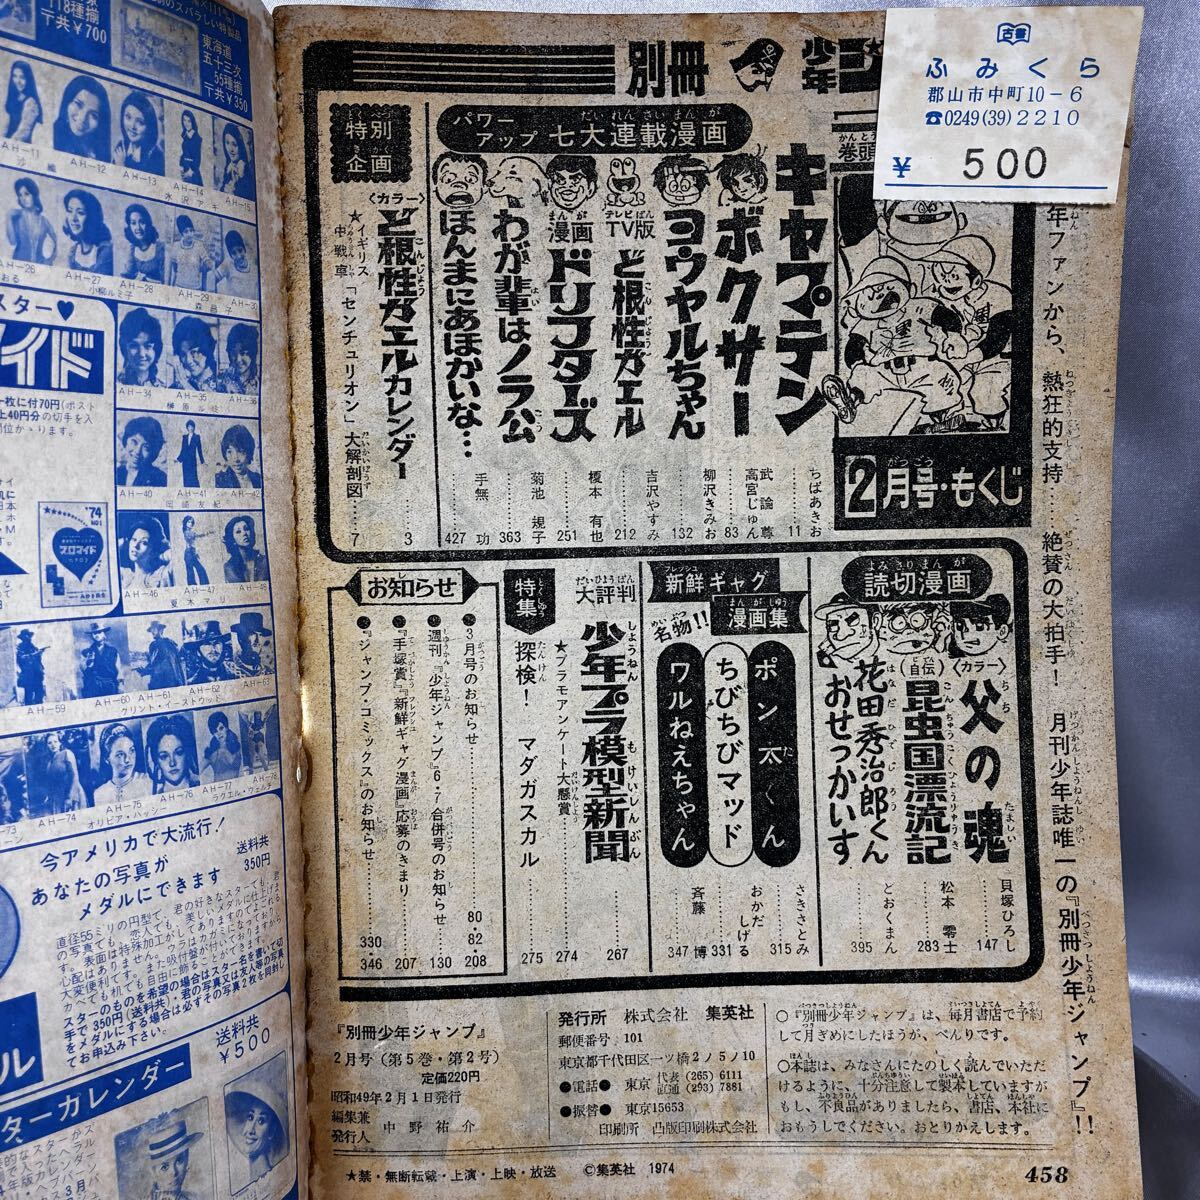 古書
ふみくら
郡山市中町10-6
☎0249(39)2210
¥ 500
別冊 少年
特別企画
パワーアップ 七大連載漫画
巻頭
キャプテン
ちばあきお 11
ボクサー
武論尊
高宮じゅん 83
ヨウヤルちゃん
柳沢きみお 132
テレビ版 TV版
ど根性ガエル
吉沢やすみ 212
漫画 ドリフターズ
榎本有也 251
わが輩はノラ公
菊池規子 363
ほんまにあほかいな…
手無功 427
〈カラー〉
ど根性ガエルカレンダー 3
★イギリス中戦車「センチュリオン」大解剖図 7
2月号・もくじ
読切漫画
〈カラー〉
父の魂
貝塚ひろし 147
(自伝)
昆虫国漂流記
松本零士 283
花田秀治郎くん
おせっかいす
どおくまん 395
新鮮ギャグ
漫画集
名物!!
ポン太くん
さきさとみ 315
ちびちびマッド
おかだしげる 331
ワルねえちゃん
斉藤博 347
大評判
少年プラ模型新聞 267
★プラモアンケート大懸賞 274
特集
探検! マダガスカル 275
お知らせ
●3月号のお知らせ 80・82 208
●週刊『少年ジャンプ』6・7合併号のお知らせ 130
●『手塚賞』『新鮮ギャグ漫画』応募のきまり 207
●『ジャンプ・コミックス』のお知らせ 330・346
年ファンから、熱狂的支持…絶賛の大拍手! 月刊少年誌唯一の『別冊少年ジャンプ』!!
『別冊少年ジャンプ』
2月号(第5巻・第2号)
定価220円
昭和49年2月1日発行
編集兼発行人 中野祐介
発行所 株式会社 集英社
郵便番号・101
東京都千代田区一ツ橋2ノ5ノ10
●電話● 東京 代表(265)6111
直通(293)7881
●振替● 東京15653
印刷所 凸版印刷株式会社
○『別冊少年ジャンプ』は、毎月書店で予約
して月ぎめにしたほうが、べんりです。
○本誌は、みなさんにたのしく読んでいただ
けるように、十分注意して製本していますが
もし、不良品がありましたら、書店、本社に
おもうしでください。おとりかえします。
★禁・無断転載・上演・上映・放送 ©集英社 1974
458
118種揃
〒共¥700
東海道
五十三次
55種揃
〒共¥350
AH-11
AH-12
AH-13
AH-14
AH-15
水沢アキ
AH-26
AH-27
AH-28
AH-29
AH-30
小柳ルミ子
森昌子
スター♥
マイド
AH-34
AH-35
AH-36
榊原ルミ
AH-40
AH-41
AH-42
岡崎友紀
AH-45
AH-46
AH-47
夏木マリ
'74
ブロマイド
AH-59
AH-60
AH-61
AH-62
AH-63
クリント・イーストウッド
AH-74
AH-75
AH-76
AH-77
AH-78
オリビア・ハッシー
ラクエル・ウェルチ
今アメリカで大流行!
あなたの写真が
メダルにできます
送料共
350円
送料共
¥500
ターカレンダー